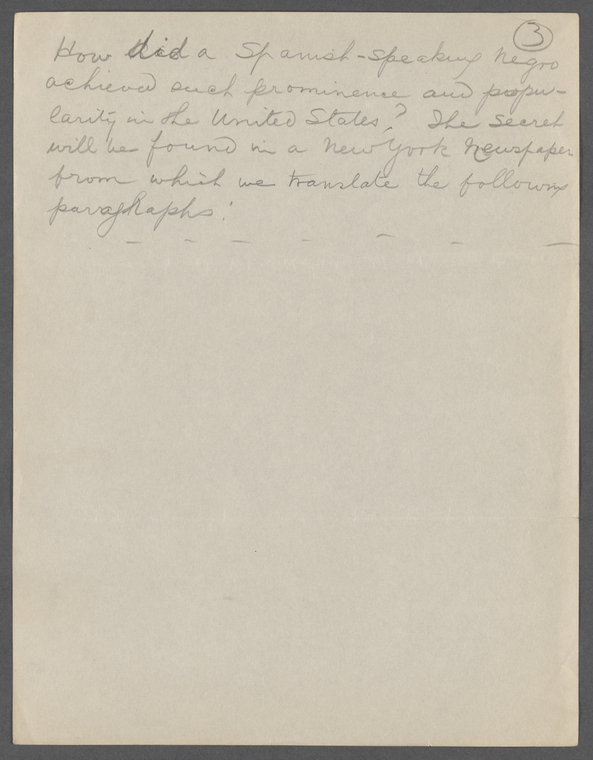 3
How did a Spanish-speaking negro
achieved such prominence and popu-
larity in the United States? The secret
will be found in a New York Newspaper
from which we translate the following
paragraphs: